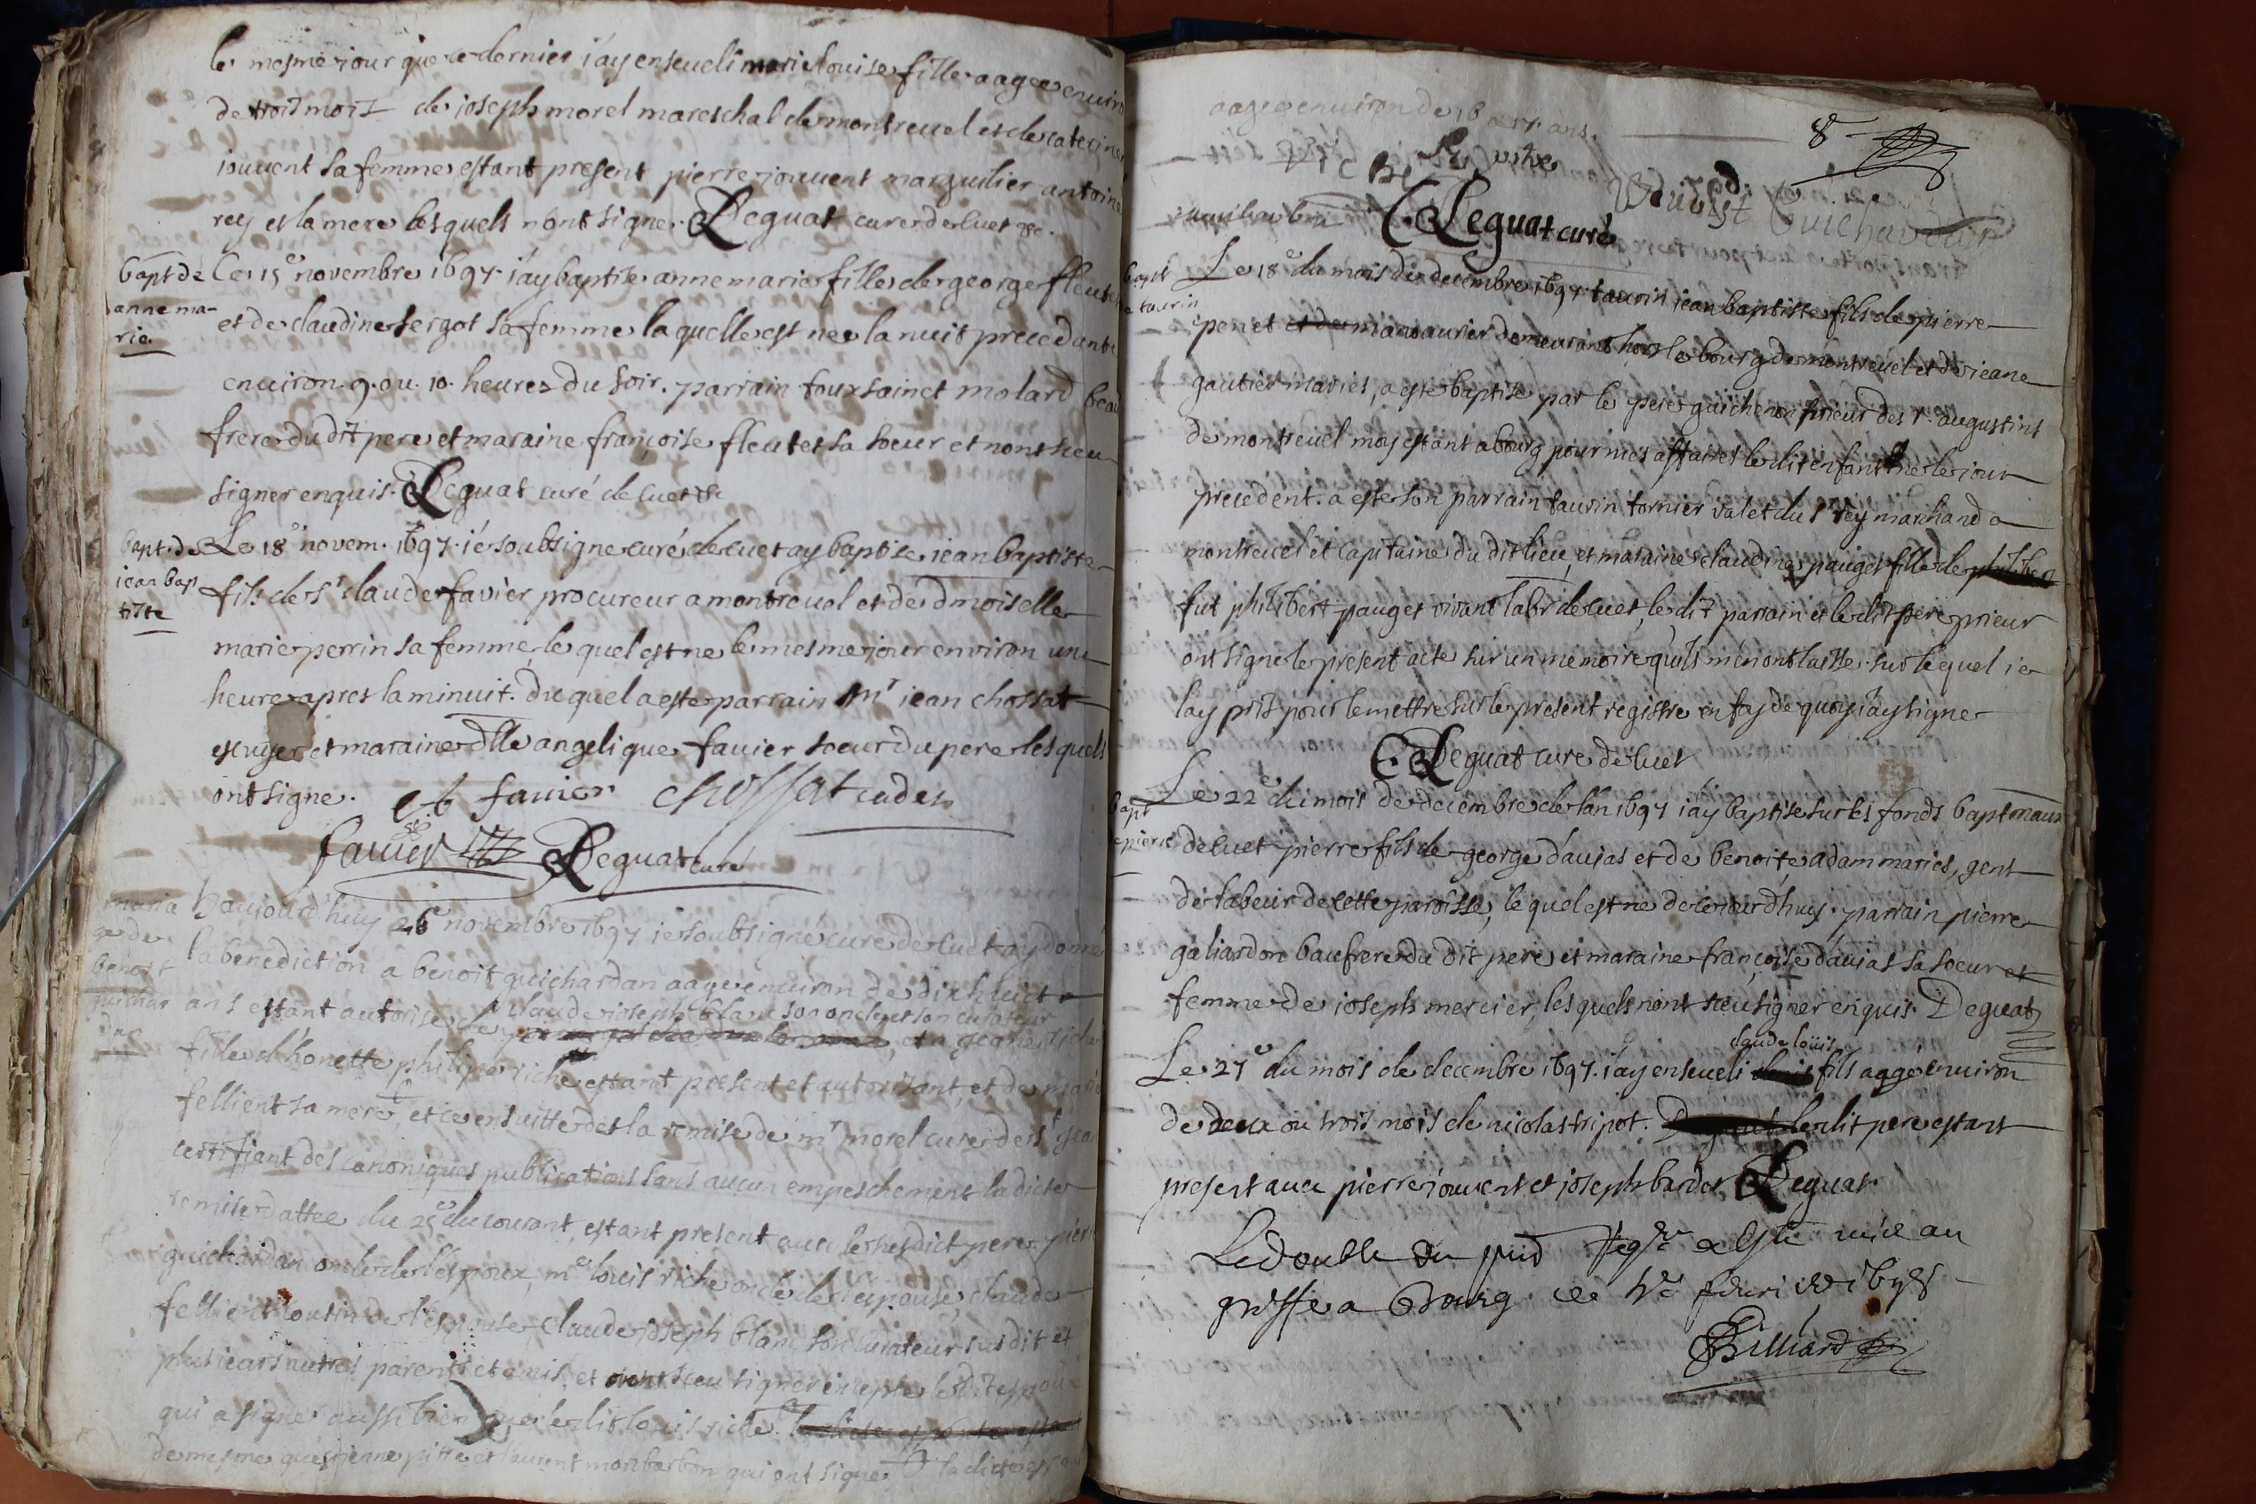 le mesme iour que ce dernier i'ay enseueli marie louise fille aagee enuiron
de trois mois de ioseph morel mareschal de montreuel et de caterine
iouuent sa femme estant present pierre iouuent marguilier antoine
rey et la mere lesquels n'ont signe. Deguat curé de cuet &c.
bapt de
anne ma-
rie.
Ce 15e novembre 1697. i'ay baptise anne marie fille de george fleutet
et de claudine sergot sa femme laquelle est nee la nuit precedante
enuiron 9. ou 10. heures du soir. parrain toussainct molard beau
frere du dit pere et maraine françoise fleutet sa soeur et n'ont sceu
signer enquis. Deguat curé de cuet &c
bapt. de
iean bap
tiste
Le 18e novem. 1697. ie soubsigne curé de cuet ay baptise iean baptiste
fils de sr claude favier procureur a montreuel et de dmoiselle
marie perrin sa femme le quel est ne le mesme iour environ une
heure apres la minuit. du quel a este parrain mr iean chossat
escuyer et maraine dlle angelique favier soeur du pere lesquels
ont signe.
favier chossat cadet
favier Deguat curé
maria
ge de
benoit
guichar
dan
aujourd'huy 26e novembre 1697 ie soubsigné curé de cuet ay donné
la benediction a benoit guichardan aagé enuiron de dixhuict
ans estant autorise de claude ioseph blanc son oncle et son curateur
et a jeanne riche
fille d'honette philipe riche estant present et autorisant, et de marie
fellient sa mere, et ce ensuitte de la remise de mr morel curé de st jean
certifiant des canoniques publications sans aucun empeschement ladicte
remise dattee du 25e du courant, estant present auec le susdict pere pierre
guichardan oncle de l'espoux, me louis riche oncle de l'espouse, claude
fellient cousin de l'espouse claude joseph blanc son curateur susdit et
plusieurs autres parents et amis, et n'ont sceu signer excepte le dit espoux
qui a signe aussi bien que le dit louis riche
de mesme que et laurent monbarbon qui ont signe la dicte
aagee enuiron de 16 a 17 ans.
8e
riche
Deguat curé
guichardan
bapt
de taurin
Le 18e du mois de decembre 1697 taurin iean baptiste fils de pierre
penet et de manouurier demeurant hors le bourg de montreuel et de ieane
gautier mariés, a este baptise par le pere guichenon prieur des r. augustins
de montreuel moy estant a bourg pour mes affaires le dit enfant né le iour
precedent. a este son parrain taurin tornier valet du sr rey marchand a
montreuel et capitaine du dit lieu, et maraine claudine pauget fille de philibert
fut philibert pauget vivant labr de cuet, le dit parrain et le dit pere prieur
ont signe le present acte sur un memoire qu'ils m'en ont laisse. sur lequel ie
l'ay pris pour le mettre sur le present registre en foy de quoy i'ay signe
Deguat curé de cuet
bapt
de pierre
Le 22e du mois de decembre de l'an 1697 i'ay baptise sur les fonds baptismaux
de cuet pierre fils de george daujas et de benoite adam mariés, gent
de labeur de cette paroisse, le quel est né de ce iourd'huy. parrain pierre
galiardon baufrere du dit pere et maraine françoise daujas sa soeur et
femme de ioseph mercier, lesquels n'ont sceu signer enquis. Deguat
claude louis
Le 27e du mois de decembre 1697. i'ay enseueli fils aagé enuiron
de deux ou trois mois de nicolas tripot. le dit pere estant
present auec pierre iouuent et joseph bardet Deguat
Le double du pnt regre a esté mis au
greffe a Bourg ce feuri
Billiard